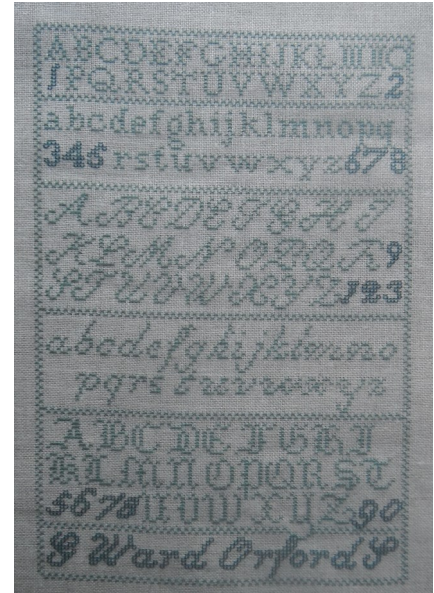 ABCDEFGHIJKLMNO
1PQRSTUVWXYZ2
abcdefghijklmnopq
345rstuvwxyz678
ABCDEFGHIJ
KLMNOPQR9
STUVWXYZ123
abcdefghijklmno
pqrstuvwxyz
ABCDEFGHIJ
KLMNOPQRST
5678UVWXYZ90
S Ward Orford S